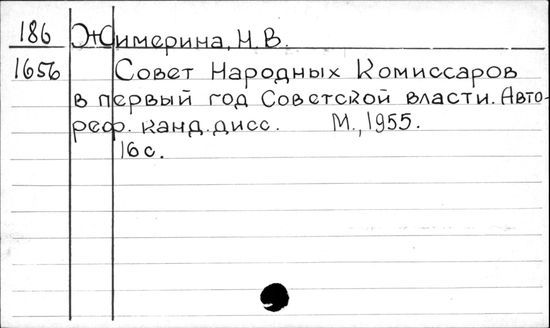 186 Жимерина, Н.В.
1656 Совет Народных Комиссаров
в первый год Советской власти. Авто-
реф. канд. дисс. М., 1955.
16 с.